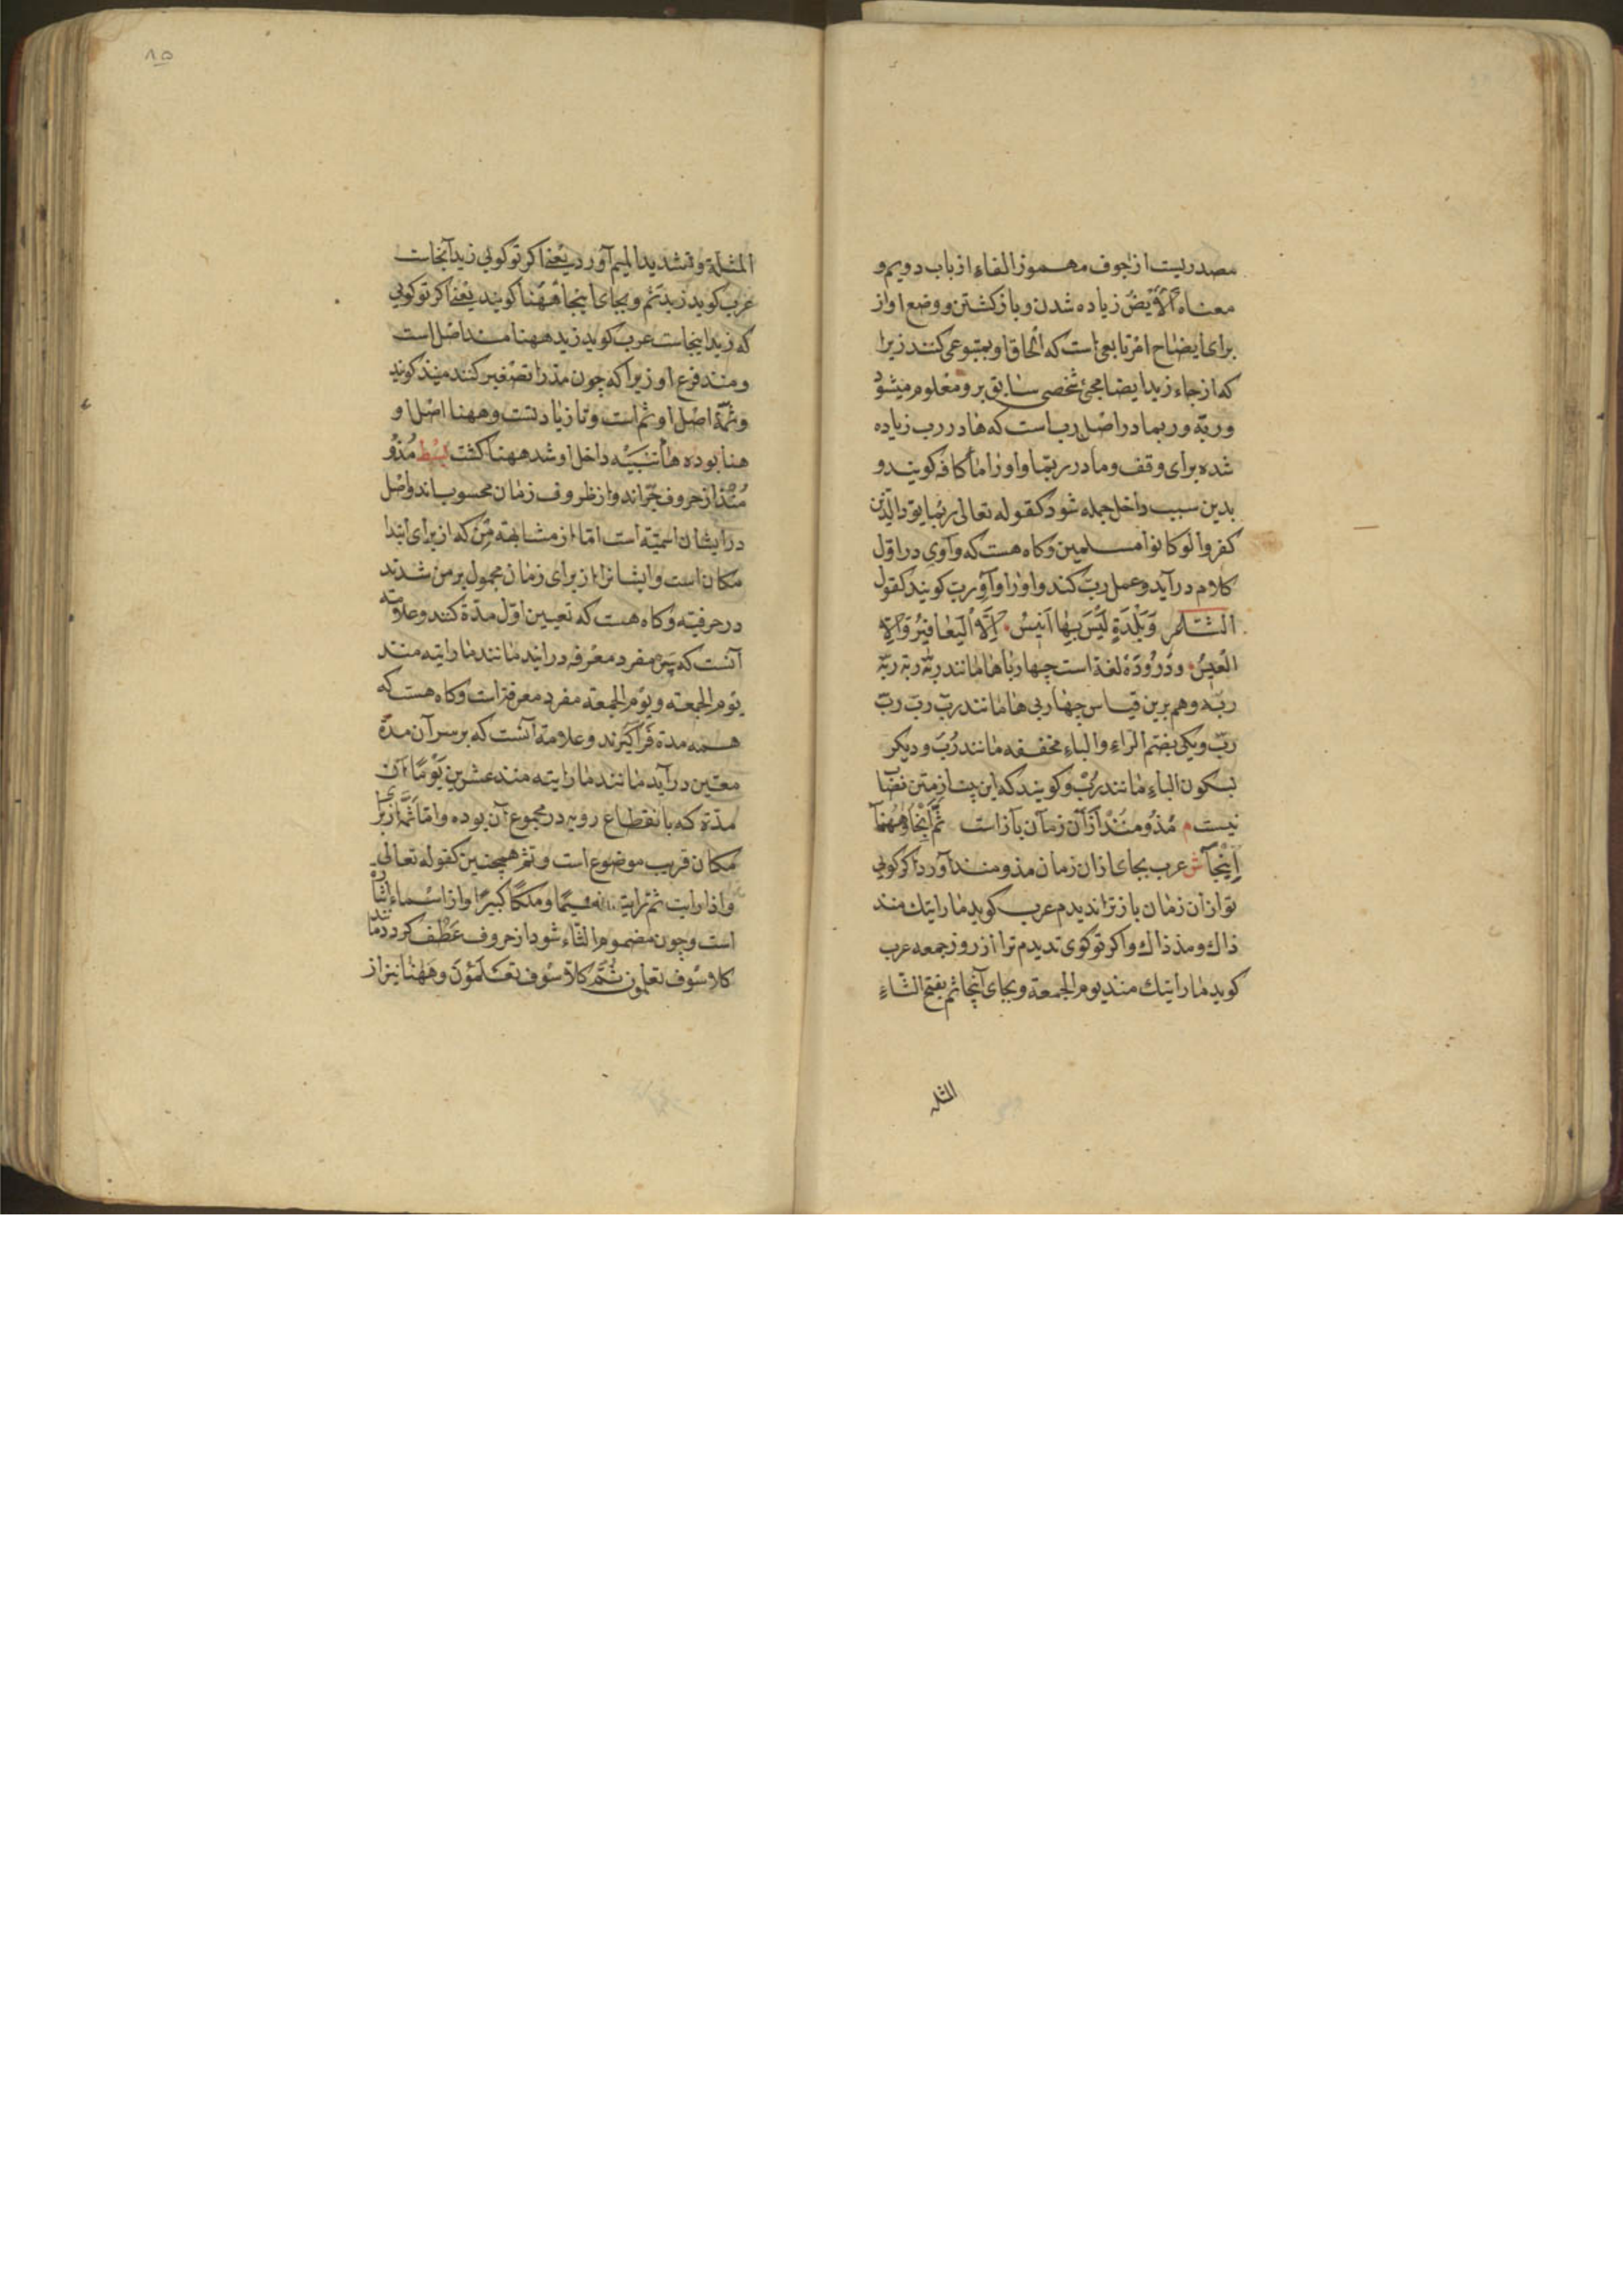 مصدریست از اجوف مهموز الفاء از باب دویم و
معناه الأیض زیاده شدن و باز کشتن و وضع او از
برای ایضاح امر تابعی است که الحاق او بمتبوعی کنند زیرا
که از جاء زید ایضا مجئ شخصی سابق برو معلوم میشود
و ربّة و ربما در اصل رب است که ها در رب زیاده
شده برای وقف و ما در ربّما و او را ما کافه کویند و
بدین سبب داخل جمله شود کقوله تعالی ربما یودّ الذین
کفروا لو کانوا مسلمین و کاه هست که واوی در اوّل
کلام درآید و عمل ربّ کند و او را واو ربّ کویند کقول
الشاعر وَبَلْدَةٍ لَیْسَ بِها اَنیسُ اِلَّا الْیَعافیرُ وَاِلّا
الْعیسُ و در لغة است چهار با ها مانند ربّة ربة ربّة
ربة و هم برین قیاس چهار بی ها مانند ربّ رب ربّ
ربّ و یکی بضم الراء والباء مخففه مانند رُبَ و دیکر
بسکون الباء مانند رُبْ و کویند که این بیت از متن نصاب
نیست م مُذْ و مُنْذُ اَزآن زمآن بآز است ثَمَّ آنْجا وَهٰهُنآ
اِینْجآ ش عرب بجای ازان زمان مذ و منذ آورد اکر کوئی
تو ازان زمان باز ترا ندیدم عرب کوید ما رایتك منذ
ذاك و مذ ذاك و اکر تو کوی ندیدم ترا از روز جمعه عرب
کوید ما رایتك منذ یوم الجمعة و بجای آنجا ثم بفتح الثاء
المثله
۸۵
المثلثة و تشدید المیم آورد یعنی اکر تو کوئی زید آنجاست
عرب کوید زید ثَم و بجای اینجا ههُنا کویند یعنی اکر تو کوئی
که زید اینجاست عرب کوید زید ههنا منذ اصل است
و مذ فرع او زیرا که چون مذ را تصغیر کنند منیذ کویند
و ثمّة اصل او ثم است و تا زیادتست و ههنا اصل او
هنا بوده هاء تنبیه داخل او شد ههنا کشت بسط مُذْ و
مُنْذُ از حروف جرّاند و از ظروف زمان محسوب اند و اصل
در ایشان اسمیّة است امّا از مشابهة مِن که از برای ابتدا
مکان است و ایشانرا از برای زمان محمول بر من شدند
در حرفیّه و کاه هست که تعیین اوّل مدّة کنند و علامة
آنست که پس مفرد معرفه درایند مانند ما رایته منذ
یوم الجمعه و یوم الجمعة مفرد معرفه است و کاه هست که
همه مدة فراکیرند و علامة آنست که بر سر آن مدّة
معیّن درآید مانند ما رایته منذ عشرین یَوْمًا ای آن
مدّة که بانقطاع رویه در مجموع آن بوده و امّا ثَمَّ از برای
مکان قریب موضوع است و ثم همچنین کقوله تعالی
و اذا رایت ثم رایت نعیمًا و ملکًا کبیرًا و از اسماء اشاره
است و چون مضموم الثّاء شود از حروف عطف کردد مانند
کلا سَوْف تعلمون ثُمَّ کلّا سَوْف تعْلَمُوْنَ و هٰهُنا نیز از